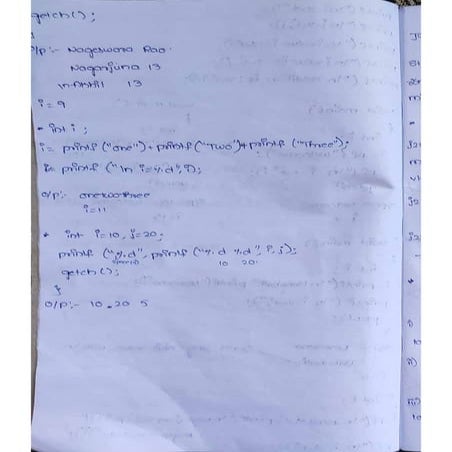 getch();
}
O/P:- Nageswara Rao.
Nagarjuna 13
13
i=9
* int i;
i= printf ("one")+printf("Two")+printf("Three");
printf ("\n i=%d", i);
O/P:- oneTwoThree
i=11
* int i=10, j=20;
printf ("%d", printf ("%d %d", i, j);
10 20
getch();
}
O/P:- 10 20 5